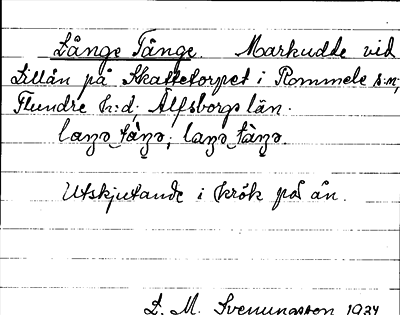 Långe Tånge. Markudde vid
Lillån på Skattetorpet i Rommele s:n,
Flundre h:d, Älfsborgs län.
Utskjutande i krök på ån.
D. M. Svenungsson 1924